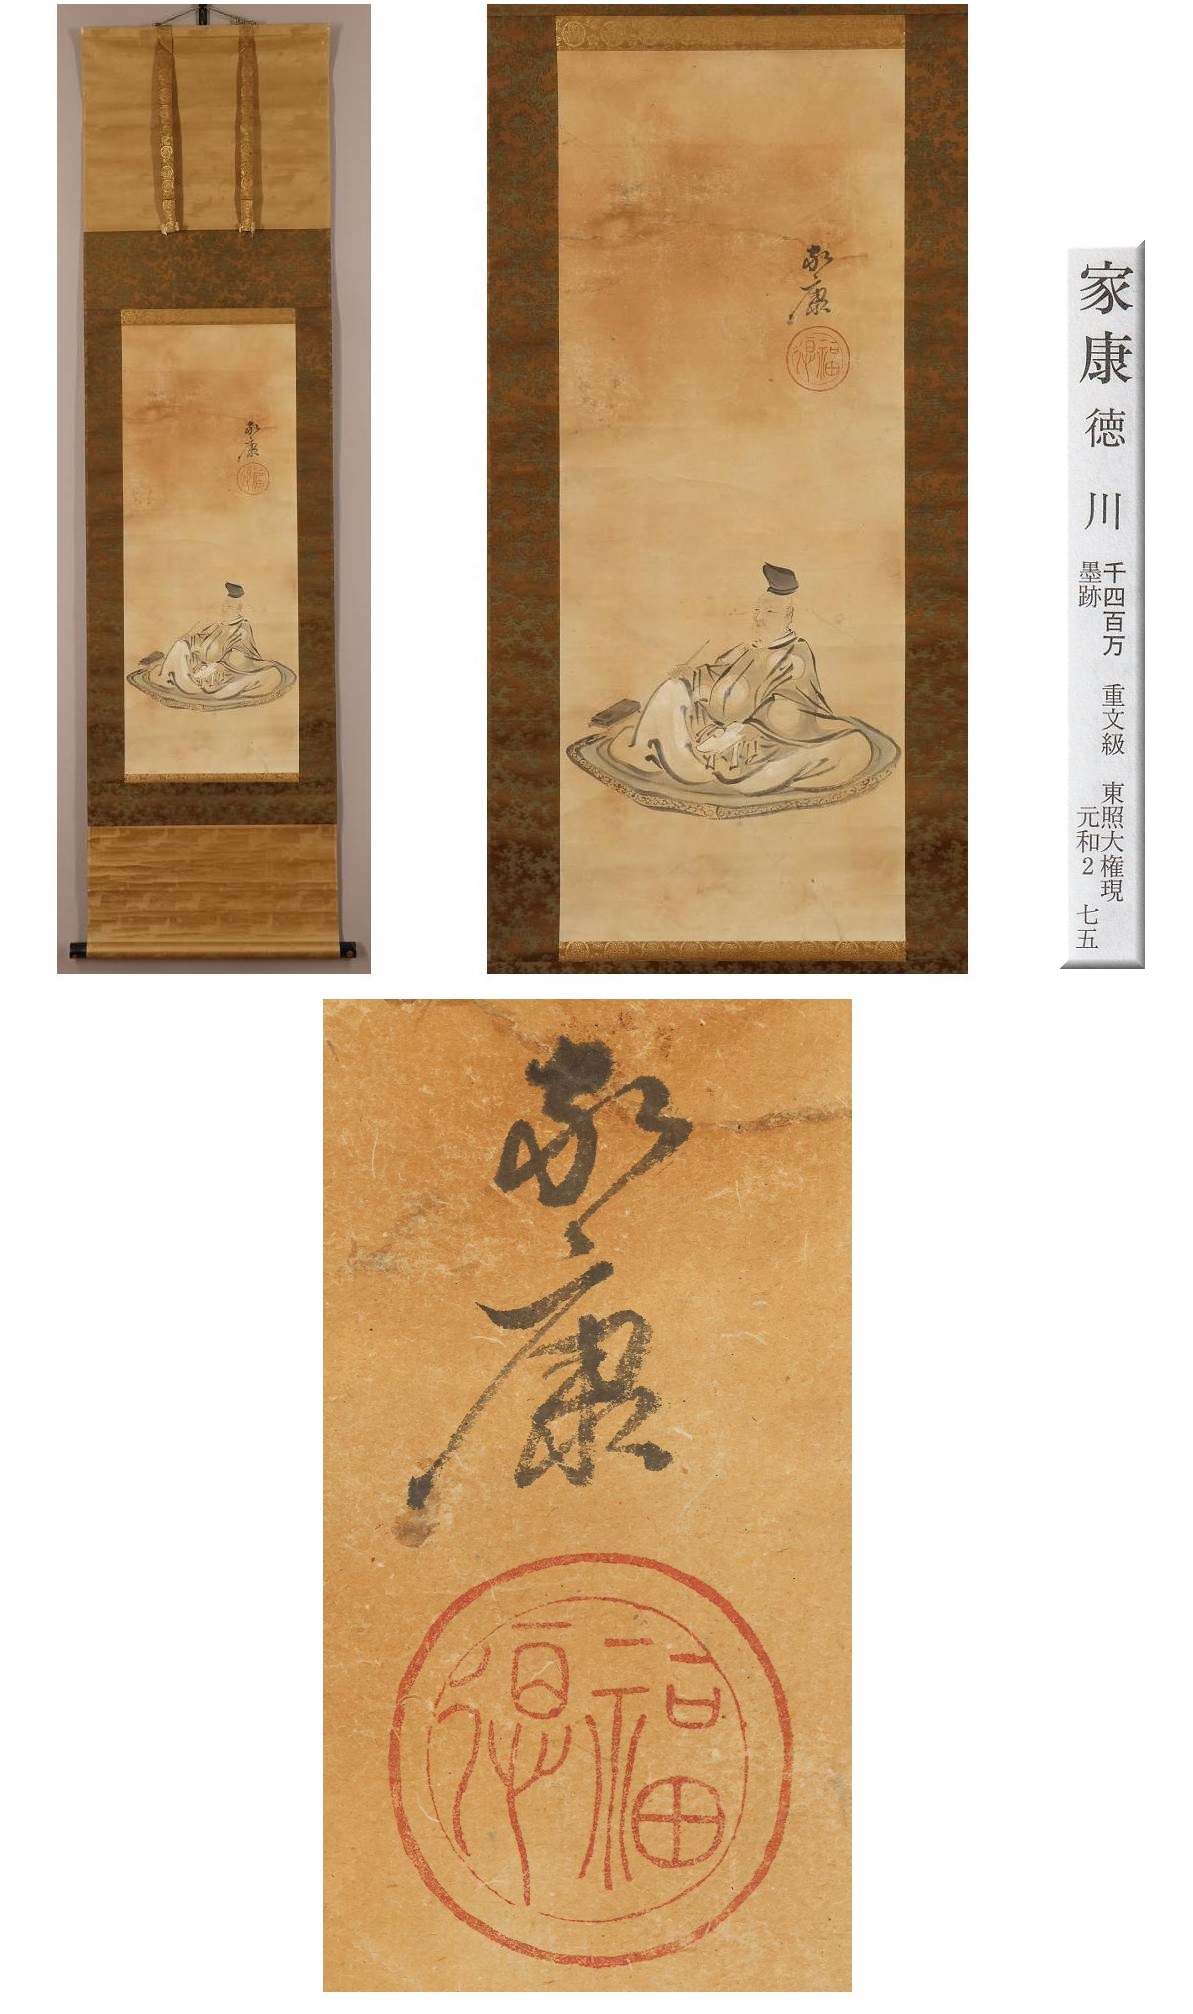 家康
福徳
家康
福徳
家康 徳川
千四百万 重文級 東照大権現
墨跡 元和2 七五
家康
福徳